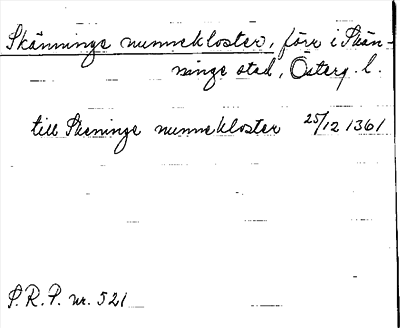 Skänninge nunnekloster, förr i Skän-
ninge stad, Österg. l.
till Skeninge nunnekloster 25/12 1361
S.R.P. nr. 521